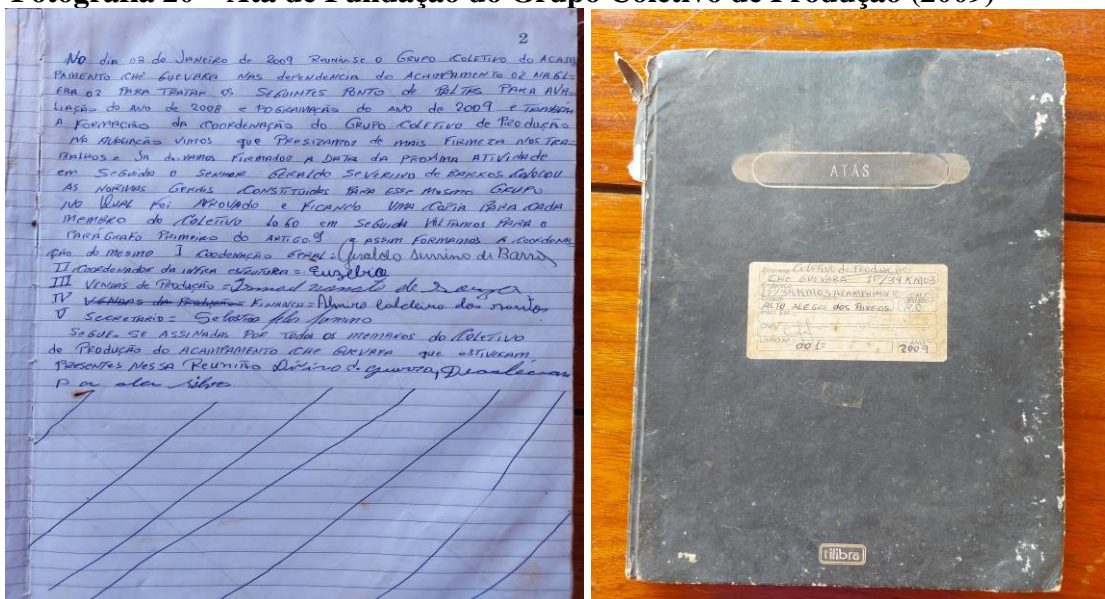 Fotografia 20 – Ata de Fundação do Grupo Coletivo de Produção (2009)
2
No dia 08 de Janeiro de 2009 Reuniu-se o Grupo Coletivo do Acam
pamento Che Guevara nas dependencia do Acampamento 02 na Gl-
eba 02 para tratar os seguintes ponto de paltas para ava
liação do ano de 2008 e pogramação do ano de 2009 e também
a formação da coordenação do Grupo Coletivo de Produção
na avaliação vimos que presizamos de mais firmeza nos tra
balhos e Ja deixamos firmados a data da proxima atividade
em seguida o Senhor Geraldo Severino de Barros colocou
as normas gerais constituidas para esse mesmo grupo
no qual foi aprovado e ficando uma copia para cada
membro do Coletivo logo em seguida voltamos para o
parágrafo primeiro do artigo 9 e assim formamos a coordena
ção do mesmo I coodenação geral = Geraldo Severino de Barros
II coordenador da infra estrutura = Euzébio
III Vendas de Produção =
IV Vendas da Produção Finança = Almiro Caldeira dos Santos
V Secretario = Sebastião
Segue-se assinadas por todos os membros do Coletivo
de Produção do Acampamento Che Guevara que estiveram
presentes nessa Reunião
Silva
ATAS
Coletivo de Produção
Che Guevara LP/34 KM03
Endereço
LP/34 KM03 Acampamento
Alto Alegre dos Parecis RO
CNPJ
Livro Nº 001 Ano 2009
tilibra